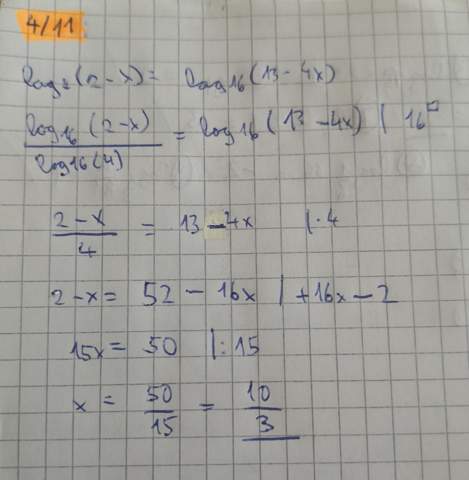 4/11
log₄(2-x) = log16(13-4x)
log16(2-x)/log16(4) = log16(13-4x) | 16^□
2-x/4 = 13-4x |·4
2-x = 52 - 16x | +16x-2
15x = 50 |:15
x = 50/15 = 10/3